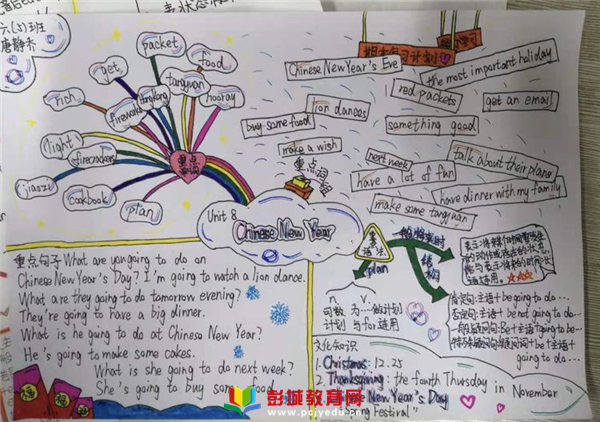 六(5)班
唐静木
packet
get
food
tangyuan
rich
Hongkong
firework
hooray
light
firecrackers
重点单词
jiaozi
cookbook
plan
期末复习计划
Chinese New Year's Eve
the most important holiday
red packets
get an email
lion dances
buy some food
something good
make a wish
重点词组
next week
talk about their plans
have a lot of fun
have dinner with my family
make some tangyuan
Unit 8
Chinese New Year
重点句子 What are you going to do on
Chinese New Year's Day? I'm going to watch a lion dance.
What are they going to do tomorrow evening?
They're going to have a big dinner.
What is he going to do at Chinese New Year?
He's going to make some cakes.
What is she going to do next week?
She's going to buy some food
语法
一般将来时
结构
plan
n.
v.
可数 为…做计划
计划 与for连用
肯定句:主语+be going to do…
否定句:主语+be not going to do…
一般疑问句:Be+主语+going to do…
特殊疑问句:疑问词+be+主语+
going to do…
文化知识
1. Christmas: 12.25
2. Thanksgiving: the fourth Thursday in November
New Year's Day
Spring Festival"
福
福
彭城教育网
www.pcjyedu.cn